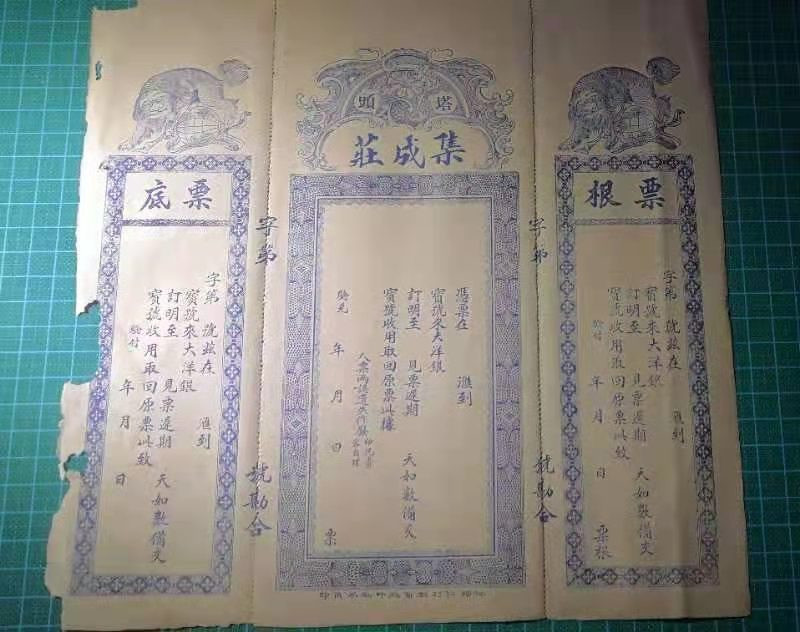 塔頭
集成莊
票根
字第　號茲在　滙到
寶號來大洋銀
訂明至　見票遲期　天如數備交
寶號收用取回原票以致
驗付　年　月　日　票根
字第
號勘合
憑票在　滙到
寶號來大洋銀
訂明至　見票遲期　天如數備交
寶號收用取回原票以據
年　月　日　票
字第
號勘合
票底
字第　號茲在　滙到
寶號來大洋銀
訂明至　見票遲期　天如數備交
寶號收用取回原票以致
驗付　年　月　日